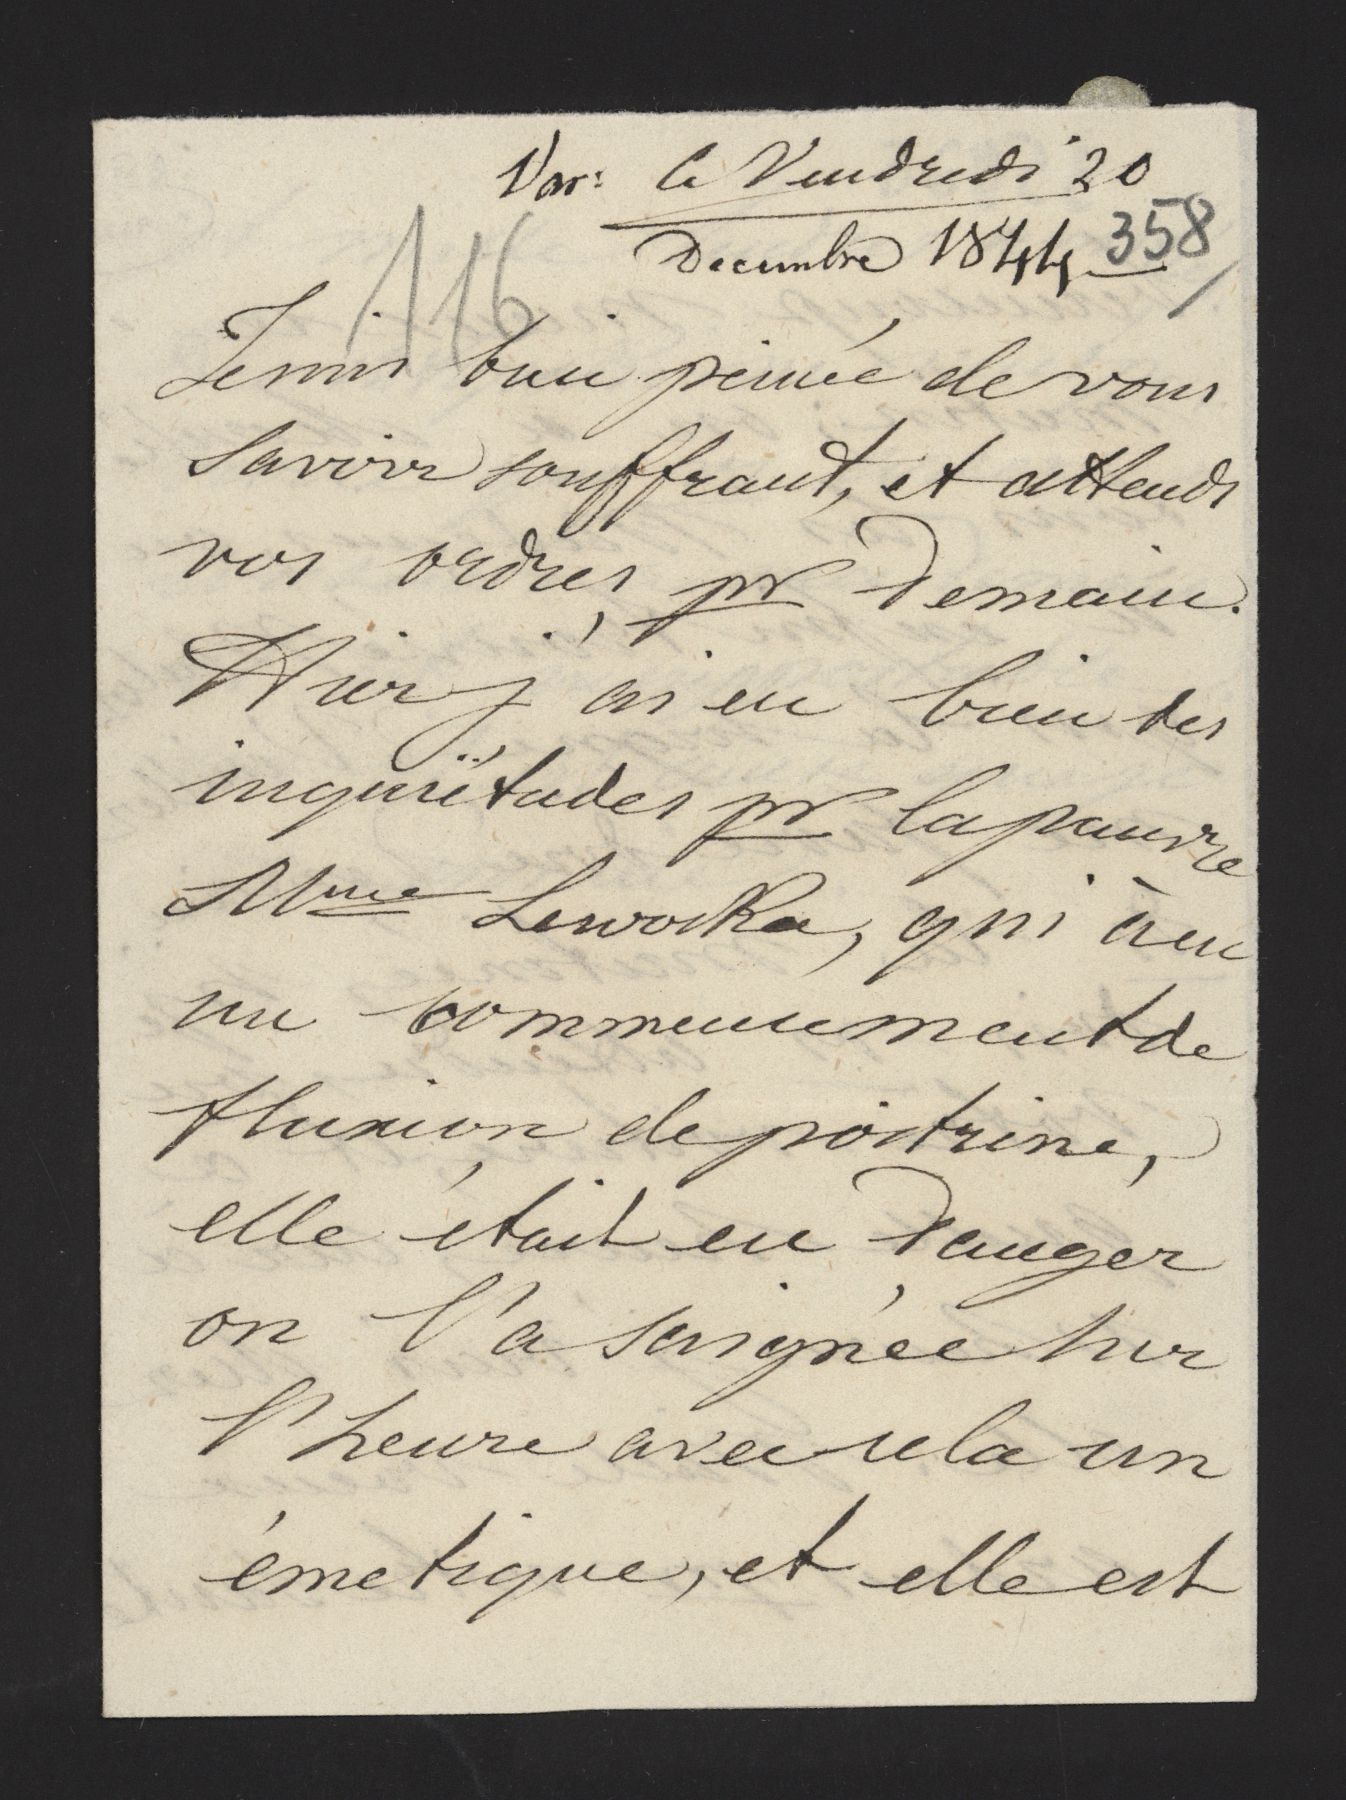 Var: le Vendredi 20
Decembre 1844
358
116
Je suis bien peinée de vous
savoir souffrant, et attends
vos ordres, pr Demain.
Hier j'ai eu bien des
inquiëtudes pr la pauvre
Mme Lewocka, qui à eu
un commencement de
fluxion de poitrine,
elle était en Danger
on l'a saignée sur
l'heure avec cela un
émetique, et elle est